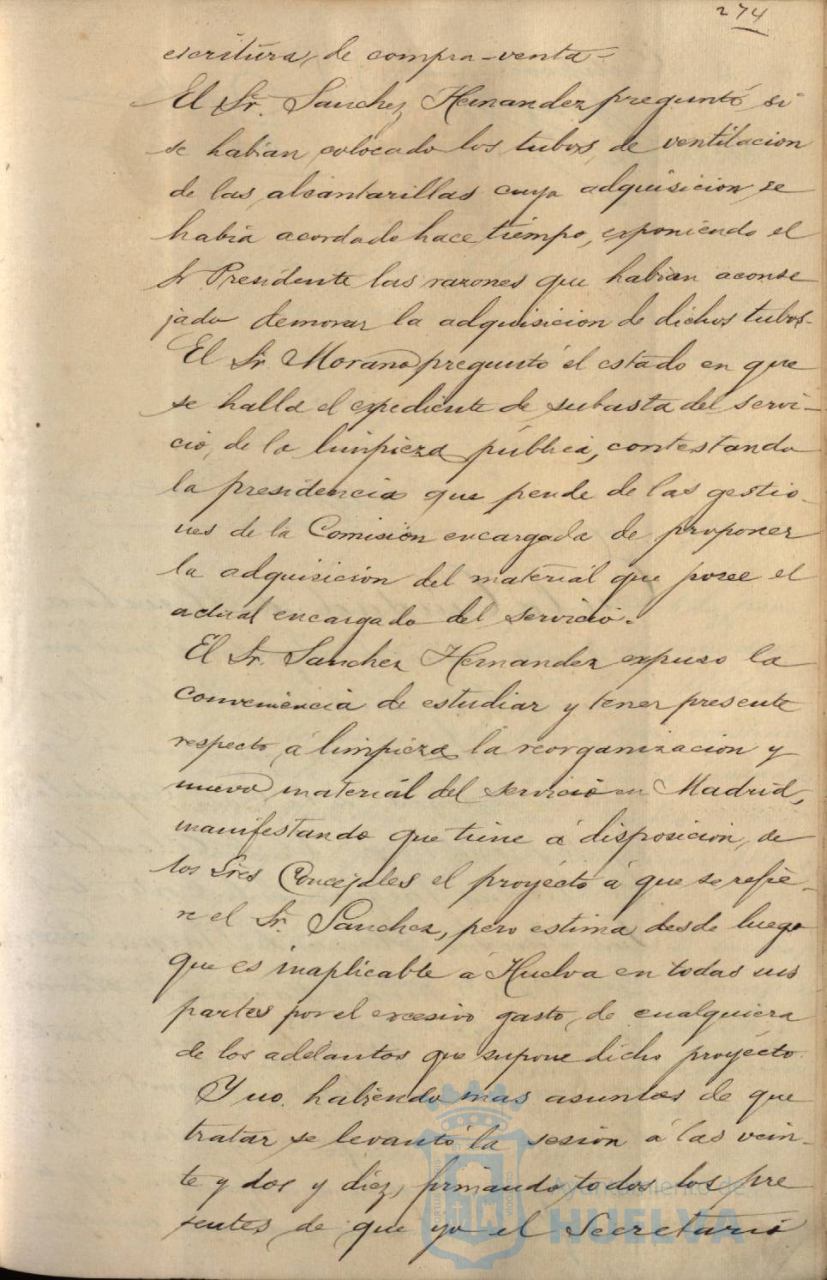 274
escritura de compra-venta-
El Sr. Sanchez Hernandez preguntó si
se habian colocado los tubos de ventilacion
de las alcantarillas cuya adquisicion se
habia acordado hace tiempo, exponiendo el
Sr Presidente las razones que habian aconse
jado demorar la adquisicion de dichos tubos-
El Sr. Morano preguntó el estado en que
se halla el expediente de subasta del servi-
cio de la limpieza pública, contestando
la presidencia que pende de las gestio-
nes de la Comisión encargada de proponer
la adquisición del material que posee el
actual encargado del servicio.
El Sr. Sanchez Hernandez expuso la
conveniencia de estudiar y tener presente
respecto á limpieza la reorganizacion y
nuevo material del servicio en Madrid,
manifestando que tiene á disposicion de
los Sres Concejales el proyécto á que se refie-
re el Sr. Sanchez, pero estima desde luego
que es inaplicable á Huelva en todas sus
partes por el excesivo gasto de cualquiera
de los adelantos que supone dicho proyécto.
Y no habiendo mas asuntos de que
tratar se levantó la sesión á las vein-
te y dos y diéz, firmando todos los pre
sentes de que yo el Secretario
Ayuntamiento de
HUELVA